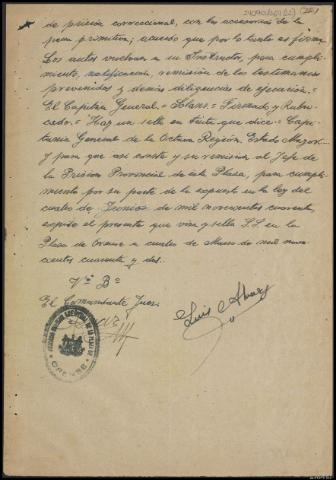 de prisión correccional, con las accesorias de la
pena primitiva; acuerdo que por lo tanto es firme.
Los autos vuelvan a su Instructor, para cumpli-
miento, notificación, remisión de los testimonios
prevenidos y demás diligencias de ejecución.=
El Capitán General.= Solans.= Firmado y Rubri-
cado.= Hay un sello en tinta que dice.= Capi-
tanía General de la Octava Región, Estado Mayor.=
Y para que así conste y su remisión al Jefe de
la Prisión Provincial de esta Plaza, para cumpli-
miento por su parte de lo expuesto en la ley del
cuatro de Junio de mil novecientos cuarenta,
expido el presente que visa y sella S.S. en la
Plaza de Orense a cuatro de de mil nove-
cientos cuarenta y dos.
Vº Bº
El Comandante Juez.
Luis Alvarez
ORENSE